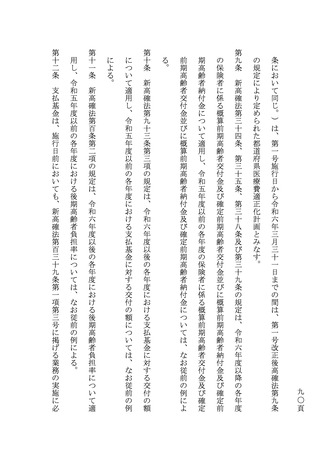 九〇頁
条において同じ。）は、第一号施行日から令和六年三月三十一日までの間は、第一号改正後高確法第九条
の規定により定められた都道府県医療費適正化計画とみなす。
第九条　新高確法第三十四条、第三十五条、第三十八条及び第三十九条の規定は、令和六年度以降の各年度
の保険者に係る概算前期高齢者交付金及び確定前期高齢者交付金並びに概算前期高齢者納付金及び確定前
期高齢者納付金について適用し、令和五年度以前の各年度の保険者に係る概算前期高齢者交付金及び確定
前期高齢者交付金並びに概算前期高齢者納付金及び確定前期高齢者納付金については、なお従前の例によ
る。
第十条　新高確法第九十三条第三項の規定は、令和六年度以後の各年度における支払基金に対する交付の額
について適用し、令和五年度以前の各年度における支払基金に対する交付の額については、なお従前の例
による。
第十一条　新高確法第百条第二項の規定は、令和六年度以後の各年度における後期高齢者負担率について適
用し、令和五年度以前の各年度における後期高齢者負担率については、なお従前の例による。
第十二条　支払基金は、施行日前においても、新高確法第百三十九条第一項第三号に掲げる業務の実施に必